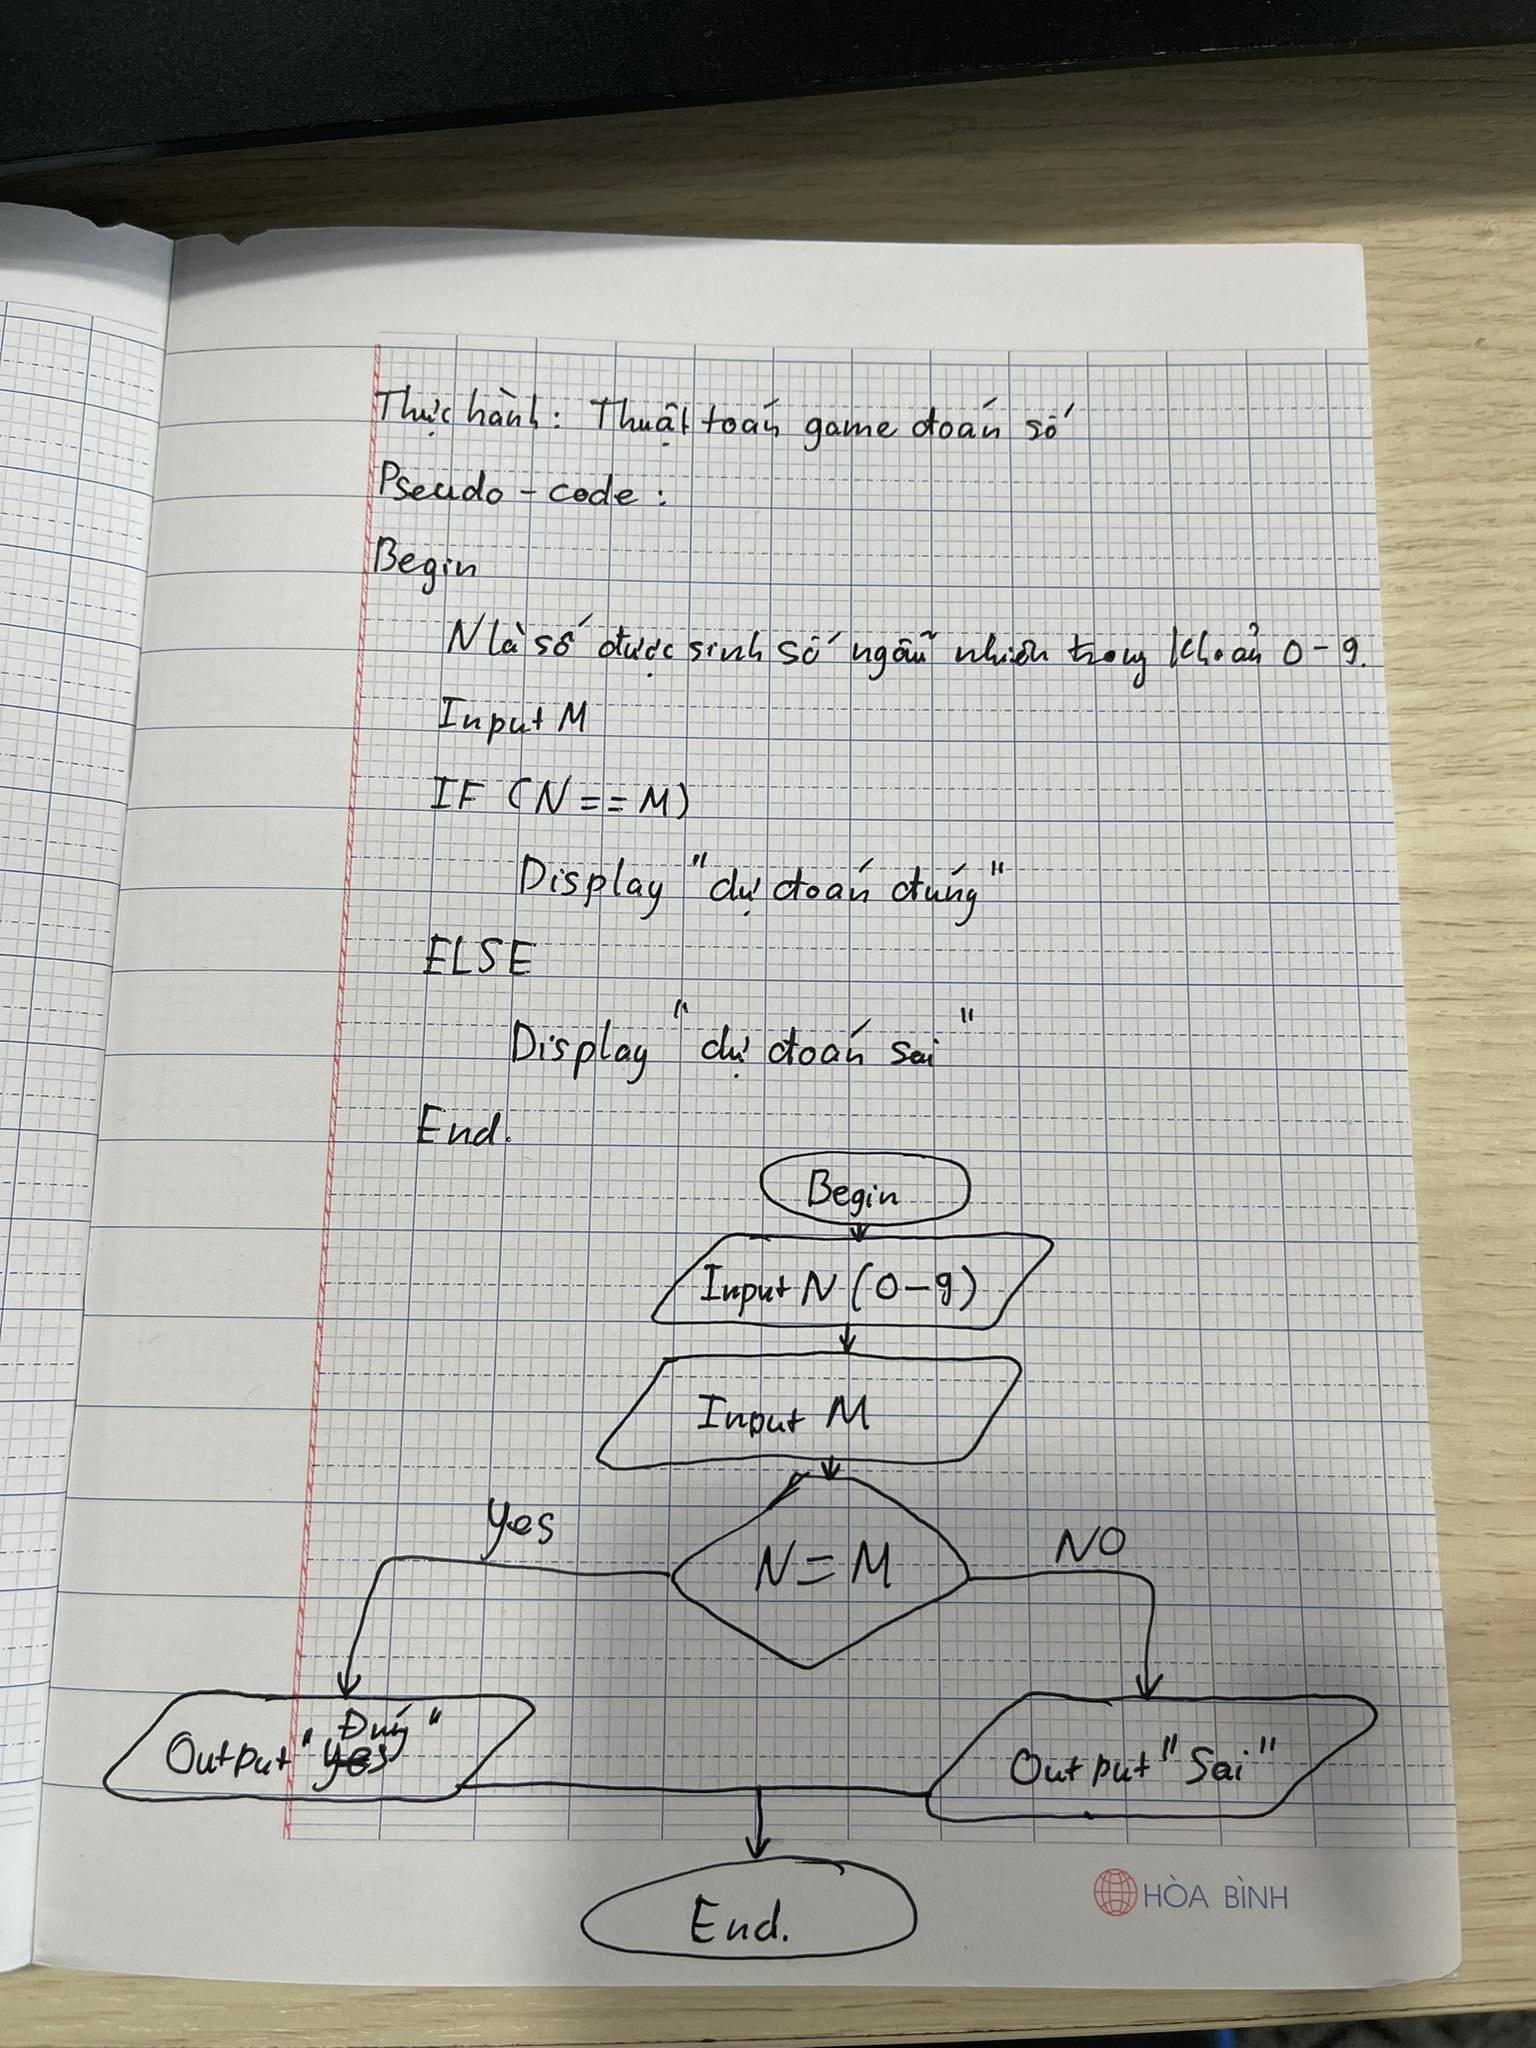 Thực hành: Thuật toán game đoán số
Pseudo - code :
Begin
N là số được sinh số ngẫu nhiên trong khoản 0 - 9.
Input M
IF (N == M)
Display "dự đoán đúng"
ELSE
Display "dự đoán sai"
End.
Begin
Input N (0-9)
Input M
N = M
yes
NO
Đúng
Output "yes"
Output "Sai"
End.
HÒA BÌNH